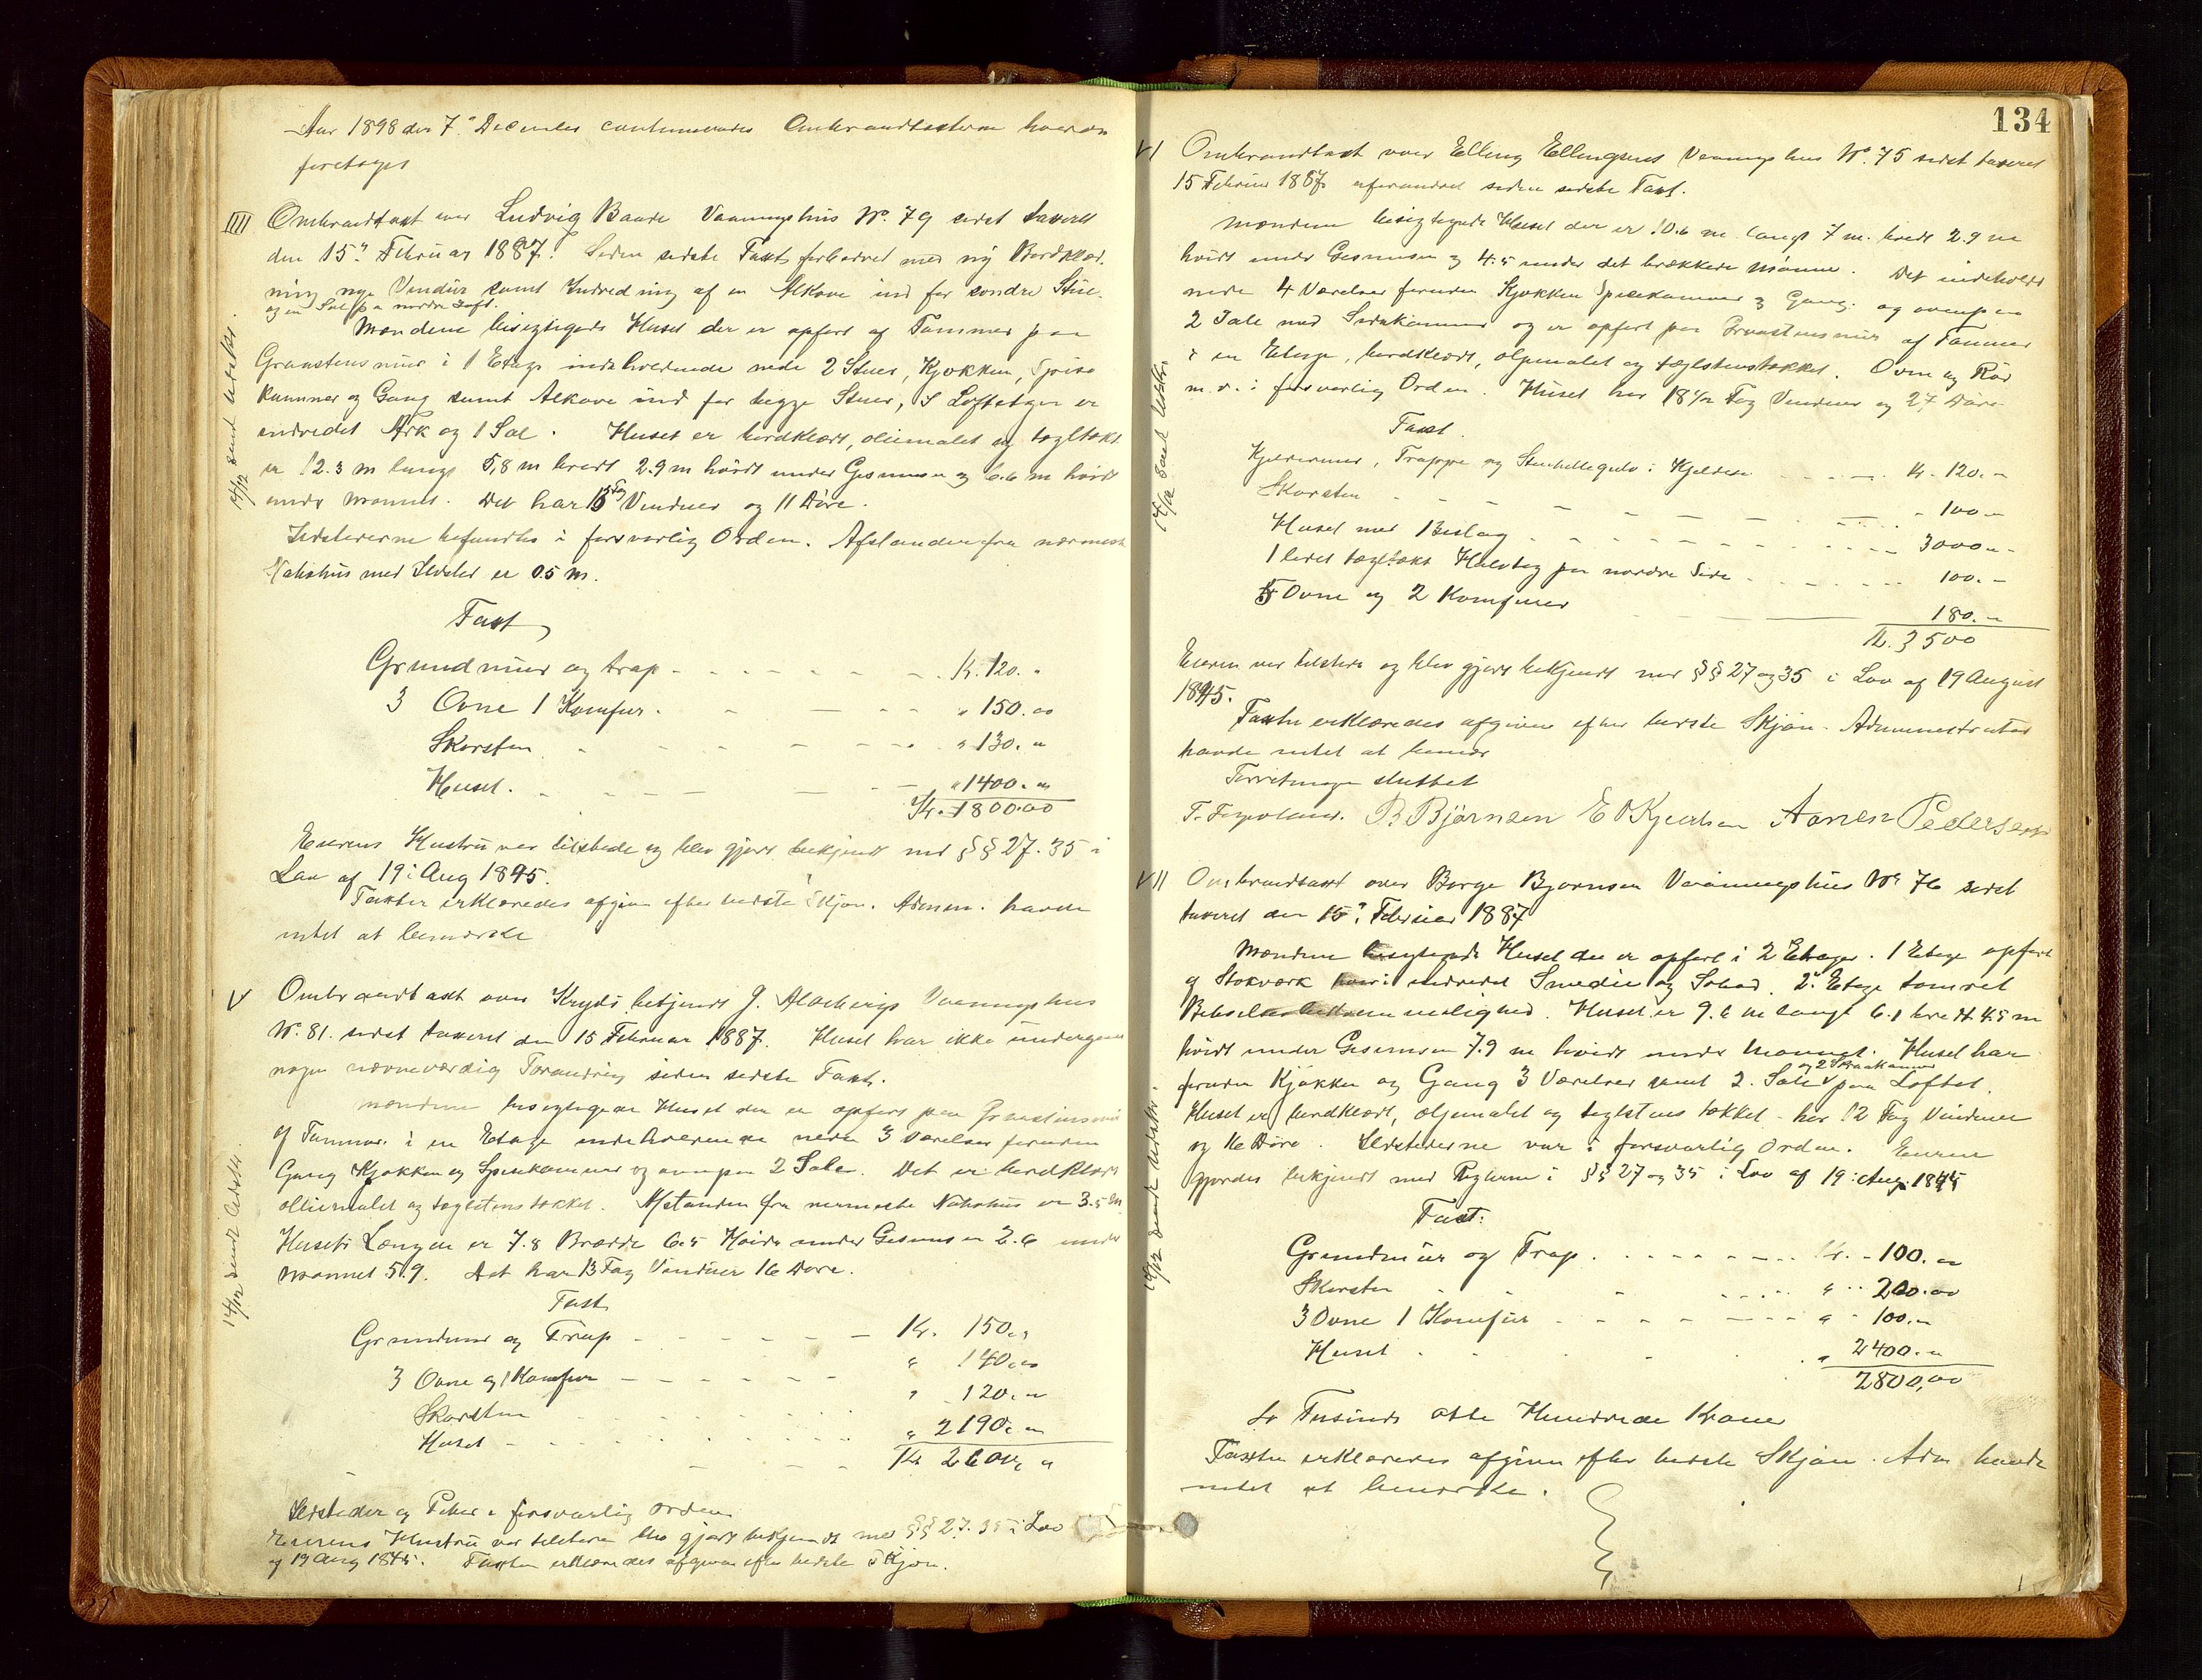 Aar 1898 den 7de December continueredes Ombrandtaxterne hvorom
foretoges
IIII Ombrandtaxt over Ludvig Baade Vaaningshus No. 79 sidst taxeret
den 15de Februar 1887. Siden sidste Taxt forbedret med ny Bordklæd-
ning nye Vinduer samt Indredning af en Alkove ind for søndre Stue
og en Sal paa nordre Loft.
Mændene besigtigede Huset der er opført af Tømmer paa
Graastensmur i 1 Etage indeholdende nede 2 Stuer, Kjøkken, Spise
kammer og Gang samt Alkove ind for begge Stuer, I Loftetagen er
indredet Ark og 1 Sal. Huset er bordklædt, oliemalet og tagltækt
er 12.3 m langt 5,8 m bredt 2.9 m høidt under Gesimsen og 6.6 m høidt
under Mønnet. Det har 13 Fag Vinduer og 11 Døre.
Ildstederne befandtes i forsvarlig Orden. Afstanden fra nærmeste
Nabohus med Ildsted er 0.5 m.
14/12 sendt Udskr.
Taxt
Grundmur og trap - - - Kr. 120. "
3 Ovne 1 Komfur - - - " 150.00
Skorsten - - - " 130. "
Huset - - - " 1400. "
Kr. 1800.00
Eierens Hustru var tilstede og blev gjort bekjendt med §§ 27. 35 i
Lov af 19: Aug 1845.
Taxter erklæredes afgiven efter bedste Skjøn. Admin. havde
intet at bemærke
V Ombrandtaxt over Krydsbetjendt J. Vaaningshus
No. 81. sidst taxeret den 15 Februar 1887. Huset har ikke undergaaet
nogen nævneværdig Forandring siden sidste Taxt.
Mændene besigtigede Huset der er opført paa Graastensmur
af Tømmer i en Etage indeholdende nede 3 Værelser foruden
Gang Kjøkken og Spisekammer og ovenpaa 2 Sale. Det er bordklædt
olliemalet og taglstenstækket. Afstanden fra nærmeste Nabohus er 3.5 m
Husets Længde er 7.8 Bredde 6.5 Høide under Gesimsen 2.6 under
Mønnet 5.9. Det har 13 Fag Vinduer 16 Døre.
14/12 sendt Udskr.
Taxt
Grundmur og Trap - - - Kr. 150. "
3 Ovne og 1 Komfur - - - " 140.00
Skorsten - - - " 120. "
Huset - - - " 2190. "
Kr. 2600. "
Ildsteder og Piber i forsvarlig Orden
Eierens Hustru var tilstede blev gjort bekjendt med §§ 27. 35 i Lov
af 19 Aug 1845. Taxten erklæredes afgiven efter bedste Skjøn.
134
VI Ombrandtaxt over Elling Ellingsens Vaaningshus No. 75 sidst taxeret
15 Februar 1887 uforandret siden sidste Taxt.
Mændene besigtigede Huset der er 10.6 m langt 7 m. bredt 2.9 m
høidt under Gesimsen og 4.5 under det brækkede Mønne. Det indeholdt
nede 4 Værelser foruden Kjøkken Spisekammer og Gang. og ovenpaa
2 Sale med Sidekammer og er opført paa Graastensmur af Tømmer
i en Etage, bordklædt, oljemalet og taglstenstækket. Ovne og Rør
m. v. i forsvarlig Orden. Huset har 18 1/2 Fag Vinduer og 27 Døre
14/12 sendt Udskr.
Taxt.
Kjeldermur, Trappe og Stenhellegulv i Kjelder - - - Kr. 120. "
Skorsten - - - " 100 "
Huset med Beslag - - - 3000 "
1 lidet tagltækt Halvtag paa nordre Side - - - 100. "
5 Ovne og 2 Komfurer - - - 180. "
Kr. 3500
Eieren var tilstede og blev gjort bekjendt med §§ 27 og 35 i Lov af 19 August
1845.
Taxten erklæredes afgiven efter bedste Skjøn. Administrator
havde intet at bemær
Forretningen sluttet
B Bjørnsen Pedersen
VII Ombrandtaxt over Børge Bjørnsen Vaaningshus No 76 sidst
taxeret den 15de Februar 1887
Mændene besigtigede Huset der er opført i 2 Etager. 1 Etage opført
af Stokværk hvori indredet Smedie og Sobod. 2. Etage tømret
Huset er 9.6 m langt 6.1 bredt 4.5 m
høidt under Gesimsen 7.9 m høidt under Mønnet. Huset har
foruden Kjøkken og Gang 3 Værelser samt 2 Sale og 2 Skraakammer paa Loftet.
Huset er bordklædt, oljemalet og taglstens tækket - har 12 Fag Vinduer
og 16 Døre. Ildstederne var i forsvarlig Orden. Eieren
gjordes bekjendt med Reglerne i §§ 27 og 35 i Lov af 19: Aug. 1845
14/12 sendt Udskr.
Taxt:
Grundmur og Trap - - - Kr. 100. "
Skorsten - - - " 200.00
3 Ovne 1 Komfur - - - " 100. "
Huset - - - " 2400. "
2800,00
to Tusinde otte Hundrede Kroner
Taxten erklæredes afgiven efter bedste Skjøn. Adm havde
intet at bemærke.